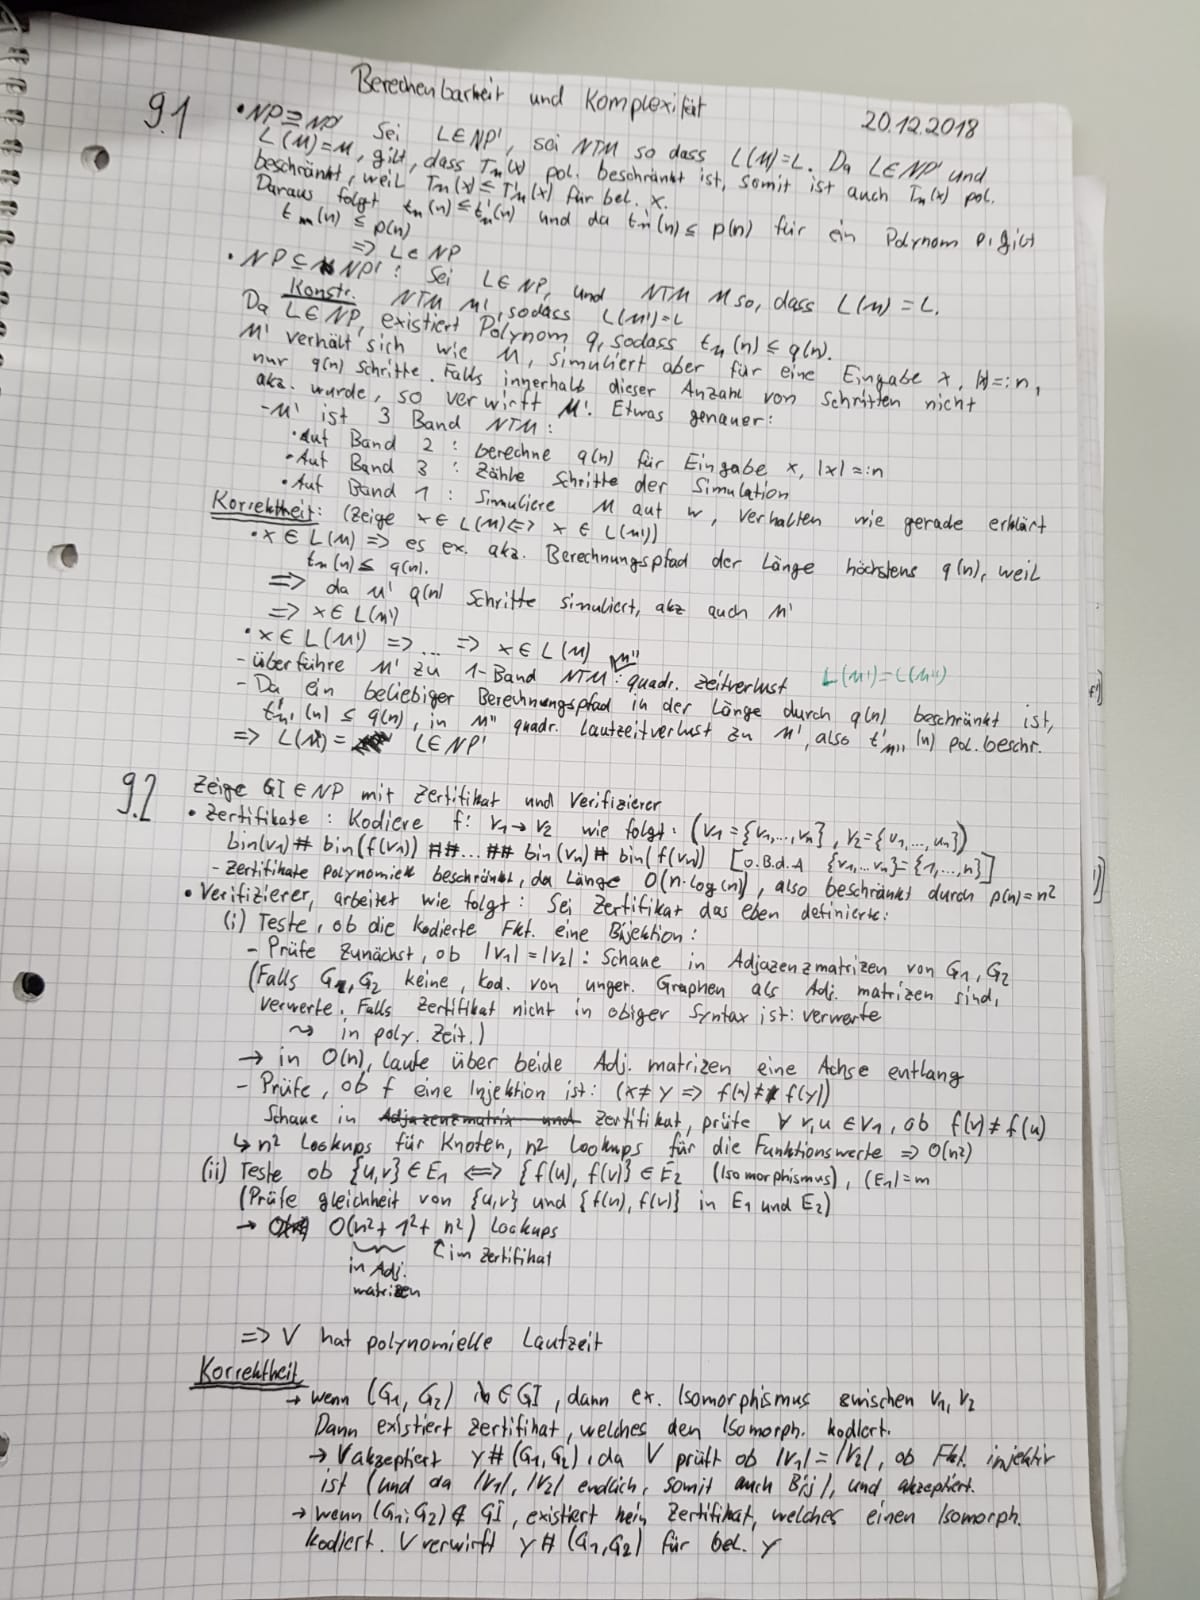 Berechenbarkeit und Komplexität
20.12.2018
9.1
• NP ⊇ NP' Sei L∈NP', sei NTM so dass L(M)=L. Da L∈NP' und
L(M)=M, gilt, dass T'm(x) pol. beschränkt ist, somit ist auch Tm(x) pol.
beschränkt, weil Tm(x) ≤ T'm(x) für bel. x.
Daraus folgt tm(n) ≤ t'm(n) und da t'm(n) ≤ p(n) für ein Polynom p, gilt
tm(n) ≤ p(n)
=> L∈NP
• NP ⊆ NP': Sei L∈NP, und NTM M so, dass L(M) = L.
Konstr. NTM M', sodass L(M')=L
Da L∈NP, existiert Polynom q, sodass tm(n) ≤ q(n).
M' verhält sich wie M, simuliert aber für eine Eingabe x, |x|=:n,
nur q(n) Schritte. Falls innerhalb dieser Anzahl von Schritten nicht
akz. wurde, so verwirft M'. Etwas genauer:
- M' ist 3 Band NTM:
• Auf Band 2 : berechne q(n) für Eingabe x, |x|=:n
• Auf Band 3 : Zähle Schritte der Simulation
• Auf Band 1 : Simuliere M auf w, verhalten wie gerade erklärt
Korrektheit: (Zeige x∈L(M) <=> x∈L(M'))
• x∈L(M) => es ex. akz. Berechnungspfad der Länge höchstens q(n), weil
tm(n) ≤ q(n).
=> da M' q(n) Schritte simuliert, akz auch M'
=> x∈L(M')
• x∈L(M') => ... => x∈L(M)
- überführe M' zu 1-Band NTM M'': quadr. Zeitverlust L(M')=L(M'')
- Da ein beliebiger Berechnungspfad in der Länge durch q(n) beschränkt ist,
t'm'(n) ≤ q(n), in M'' quadr. Laufzeitverlust zu M', also t'm''(n) pol. beschr.
=> L(M) = L∈NP'
9.2 Zeige GI∈NP mit Zertifikat und Verifizierer
• Zertifikate : Kodiere f: V1→V2 wie folgt: (V1={v1,...,vn}, V2={u1,...,un})
bin(v1)# bin(f(v1)) ##...## bin(vn)# bin(f(vn)) [o.B.d.A {v1,...vn}={1,...,n}]
- Zertifikate polynomiell beschränkt, da Länge O(n·log(n)), also beschränkt durch p(n)=n²
• Verifizierer, arbeitet wie folgt: Sei Zertifikat das eben definierte:
(i) Teste, ob die kodierte Fkt. eine Bijektion:
- Prüfe zunächst, ob |V1|=|V2|: Schaue in Adjazenzmatrizen von G1, G2
(Falls G1, G2 keine, kod. von unger. Graphen als Adj. matrizen sind,
verwerfe. Falls Zertifikat nicht in obiger Syntax ist: verwerfe
⤳ in poly. Zeit.)
→ in O(n), laufe über beide Adj. matrizen eine Achse entlang
- Prüfe, ob f eine Injektion ist: (x≠y => f(x)≠f(y))
Schaue in Adjazenzmatrix und Zertifikat, prüfe ∀ v,u ∈V1, ob f(v)≠f(u)
↳ n² Lookups für Knoten, n² Lookups für die Funktionswerte => O(n²)
(ii) Teste ob {u,v}∈E1 <=> {f(u), f(v)}∈E2 (Isomorphismus), |E1|=m
(Prüfe gleichheit von {u,v} und {f(u), f(v)} in E1 und E2)
→ O(n²+1²+ n²) Lookups
in Adj. ↑ im Zertifikat
matrizen
=> V hat polynomielle Laufzeit
Korrektheit
→ wenn (G1, G2) ∈GI, dann ex. Isomorphismus zwischen V1, V2
Dann existiert Zertifikat, welches den Isomorph. kodiert.
→ V akzeptiert y#(G1,G2), da V prüft ob |V1|=|V2|, ob Fkt. injektiv
ist (und da |V1|, |V2| endlich, somit auch Bij), und akzeptiert.
→ wenn (G1,G2) ∉ GI, existiert kein Zertifikat, welches einen Isomorph.
kodiert. V verwirft y#(G1,G2) für bel. y